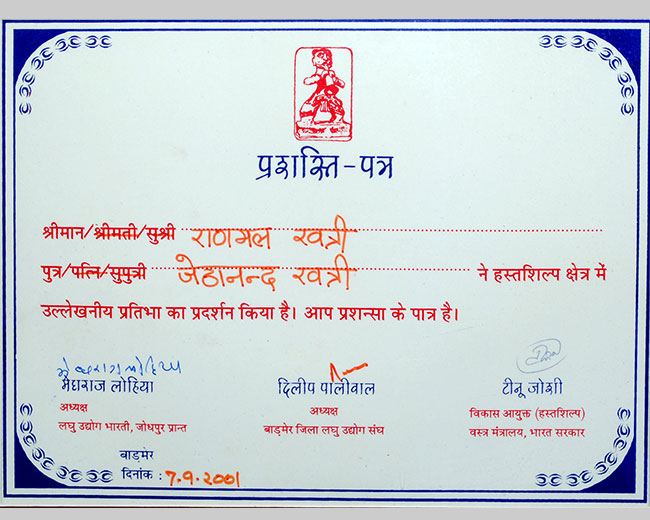 प्रशस्ति-पत्र
श्रीमान/श्रीमती/सुश्री राणामल खत्री
पुत्र/पत्नि/सुपुत्री जेठानन्द खत्री ने हस्तशिल्प क्षेत्र में
उल्लेखनीय प्रतिभा का प्रदर्शन किया है। आप प्रशन्सा के पात्र है।
मेघराज लोहिया
मेघराज लोहिया दिलीप पालीवाल टीनू जोशी
अध्यक्ष अध्यक्ष विकास आयुक्त (हस्तशिल्प)
लघु उद्योग भारती, जोधपुर प्रान्त बाड़मेर जिला लघु उद्योग संघ वस्त्र मंत्रालय, भारत सरकार
बाड़मेर
दिनांक : 7.9.2001